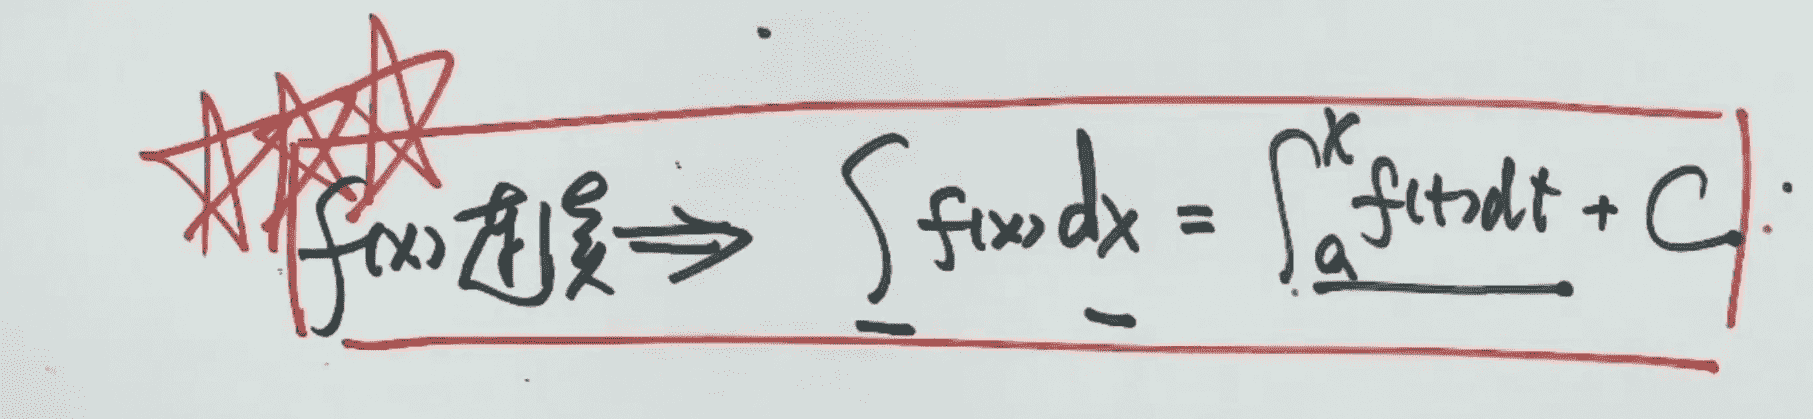 f(x)连续⇒ ∫f(x)dx = ∫ₐˣf(t)dt + C